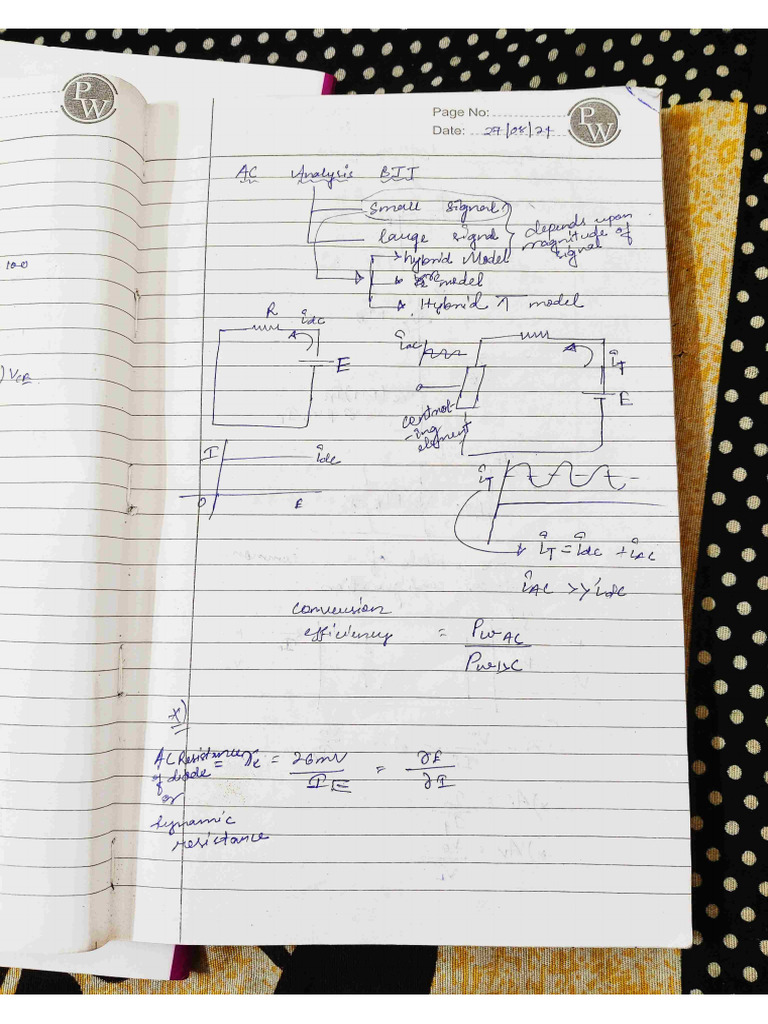 PW
100
) VCE
Page No:
Date: 27/08/24
PW
AC Analysis BJT
Small Signal
large Signal
depends upon
magnitude of
signal
hybrid Model
re model
Hybrid π model
R idc
E
iac
iT
E
control-
ing
element
I idc
O E
iT
iT = idc + iAC
iAC >> idc
conversion
efficiency = PwAC / PwDC
*)
AC Resistance = re = 26mV / IE = ∂E / ∂I
of diode
or
dynamic
resistance